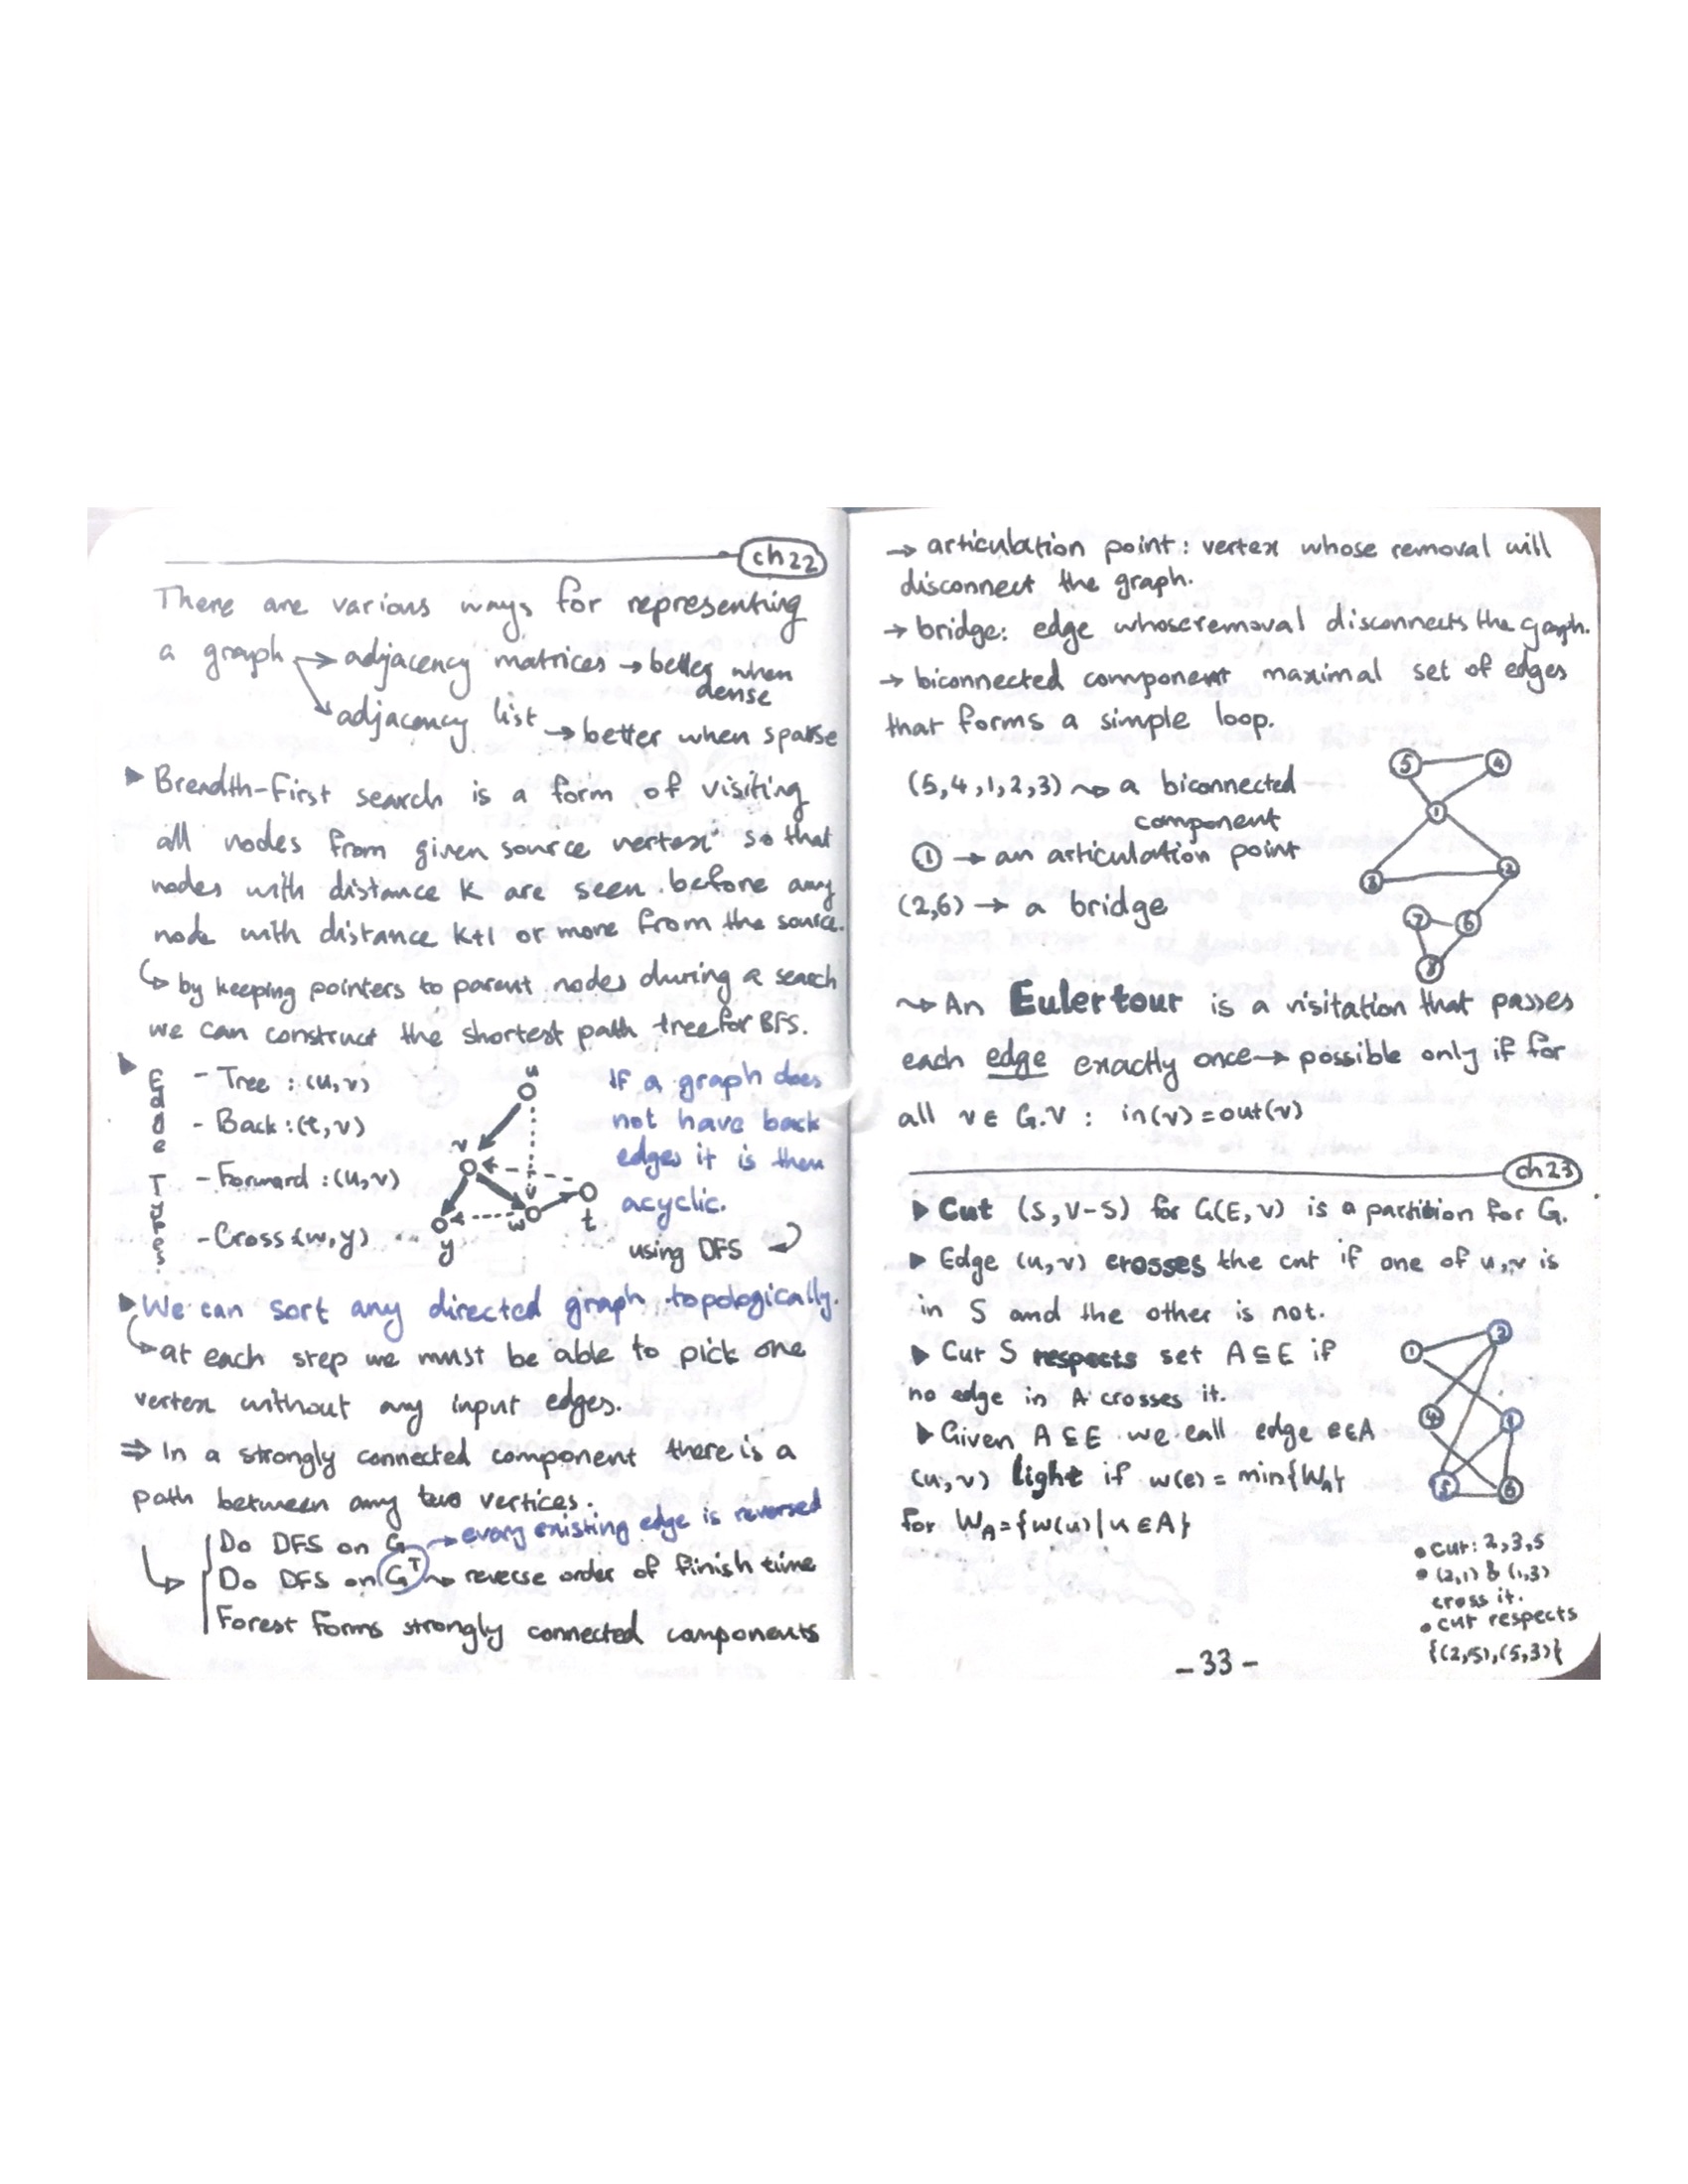 ch22
There are various ways for representing
a graph → adjacency matrices → better when
dense
adjacency list → better when sparse
▶ Breadth-First search is a form of visiting
all nodes from given source vertex so that
nodes with distance k are seen before any
node with distance k+1 or more from the source.
↳ by keeping pointers to parent nodes during a search
we can construct the shortest path tree for BFS.
▶ Edge Types:
- Tree : (u,v)
- Back : (t,v)
- Forward : (u,v)
- Cross : (w,y)
u
v
w
t
y
If a graph does
not have back
edges it is then
acyclic.
using DFS
▶ We can sort any directed graph topologically.
↳ at each step we must be able to pick one
vertex without any input edges.
⇒ In a strongly connected component there is a
path between any two vertices.
Do DFS on G → every existing edge is reversed
Do DFS on G^T ⇝ reverse order of finish time
Forest Forms strongly connected components
→ articulation point : vertex whose removal will
disconnect the graph.
→ bridge: edge whose removal disconnects the graph.
→ biconnected component maximal set of edges
that forms a simple loop.
(5,4,1,2,3) ⇝ a biconnected
component
① → an articulation point
(2,6) → a bridge
5 4
1
3 2
7 6
8
⇝ An Euler tour is a visitation that passes
each edge exactly once → possible only if for
all v ∈ G.V : in(v) = out(v)
ch23
▶ Cut (S, V-S) for G(E,V) is a partition for G.
▶ Edge (u,v) crosses the cut if one of u,v is
in S and the other is not.
▶ Cut S respects set A ⊆ E if
no edge in A crosses it.
▶ Given A ⊆ E we call edge e∈A
(u,v) light if w(e) = min{W_A}
for W_A = {w(u) | u ∈ A}
1
4
5 6
• cut: 2,3,5
• (2,1) & (1,3)
cross it.
• cut respects
{(2,5),(5,3)}
- 33 -